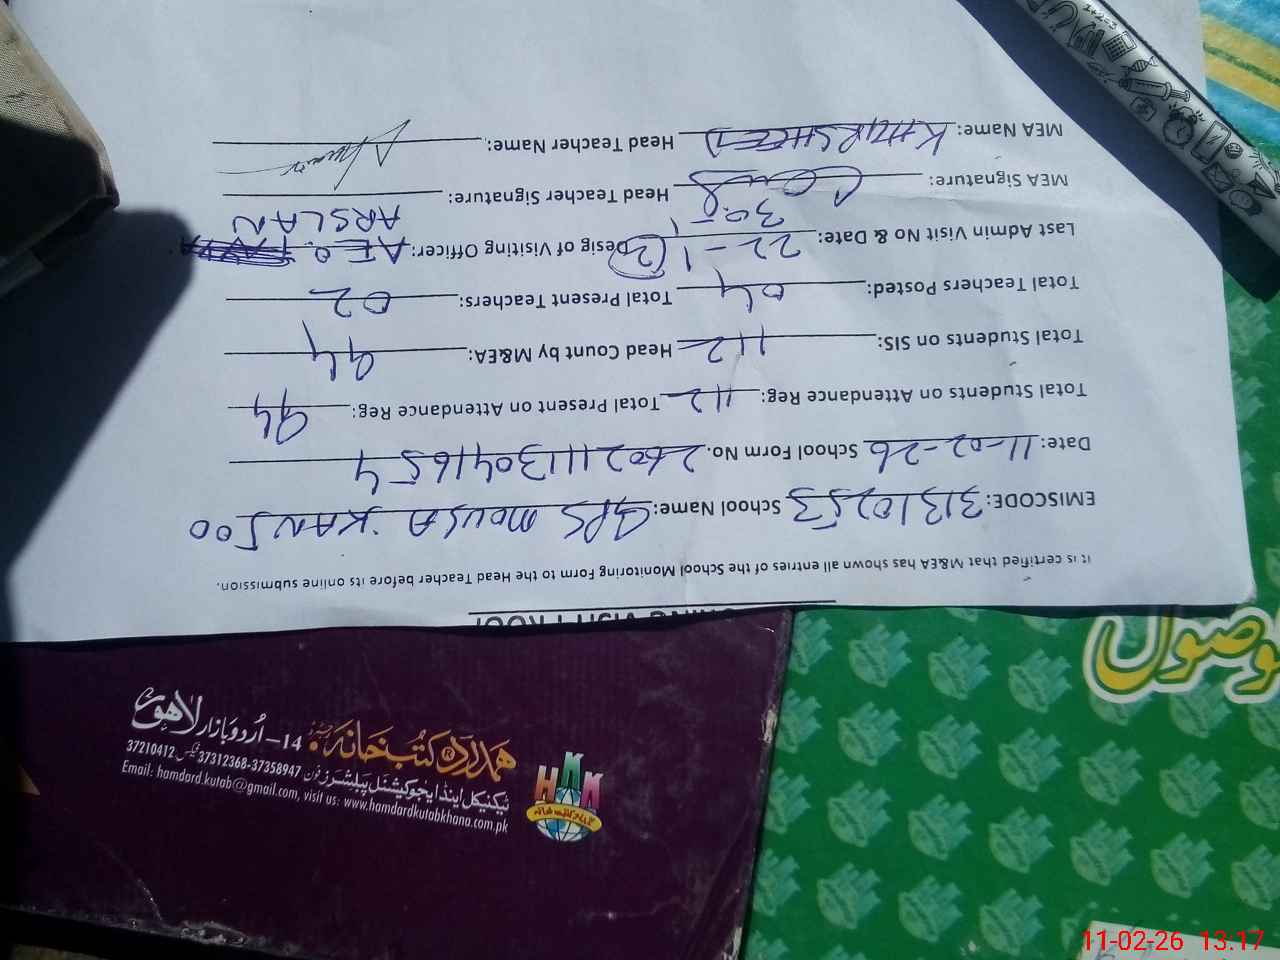 It is certified that M&EA has shown all entries of the School Monitoring Form to the Head Teacher before its online submission.
EMISCODE: 31310253 School Name: GPS MOUSA KANJOO
Date: 11-02-26 School Form No. 26021113041654
Total Students on Attendance Reg: 112 Total Present on Attendance Reg: 94
Total Students on SIS: 112 Head Count by M&EA: 94
Total Teachers Posted: 04 Total Present Teachers: 02
Last Admin Visit No & Date: 22-1 (2) Desig of Visiting Officer: A.E.O.
ARSLAN
MEA Signature: Head Teacher Signature:
MEA Name: KHURSHEED Head Teacher Name:
ہمدرد کتب خانہ
14-اُردو بازار لاہور
ٹیکنیکل اینڈ ایجوکیشنل پبلشرز فون 37312368-37358947 فیکس 37210412
Email: hamdard.kutab@gmail.com, visit us: www.hamdardkutabkhana.com.pk
HKK
وصول
1+2=3
11-02-26 13:17